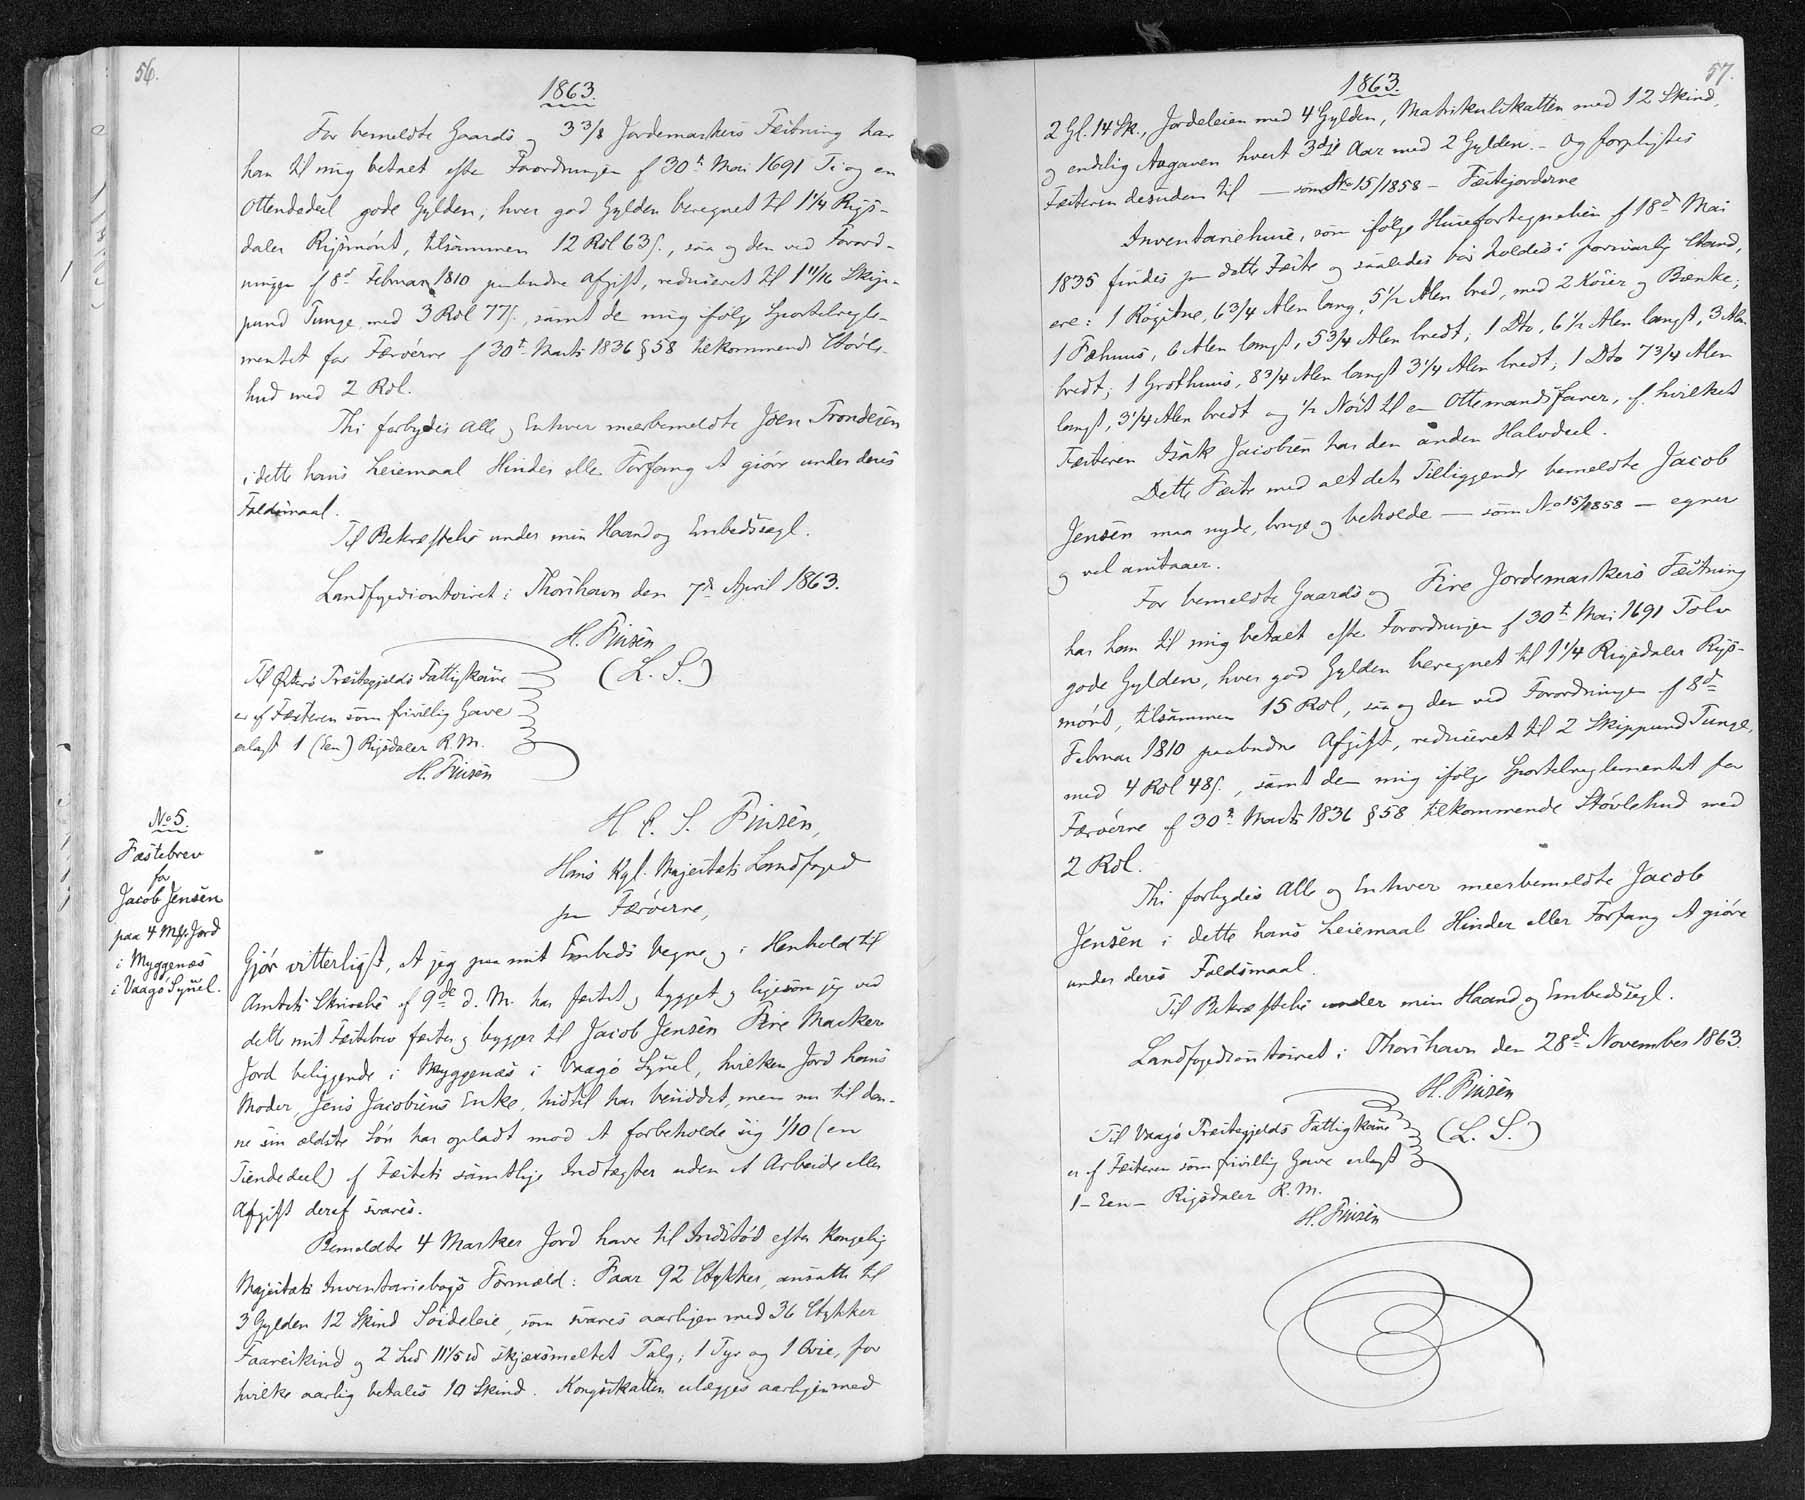 56.
1863.
For bemeldte Gaards og 3 3/8 Jordemarkers Fæstning har
han til mig betalt efter Forordningen af 30te Mai 1691 Ti og en
Ottendedeel gode Gylden, hver god Gylden beregnet til 1 1/4 Rigs-
daler Rigsmønt, tilsammen 12 Rdl 63 s., saa og den ved Forord-
ningen af 8d Februar 1810 paabudne Afgift, reduceret til 1 11/16 Skip-
pund Tunge, med 3 Rdl 77 s., samt de mig ifølge Sportelregle-
mentet for Færøerne af 30te Marts 1836 § 58 tilkommende Støvle-
hud med 2 Rdl.
Thi forbydes Alle og Enhver meerbemeldte Joen Trondesen
i dette hans Leiemaal Hinder eller Forfang at giøre under deres
Faldsmaal.
Til Bekræftelse under min Haand og Embedssegl.
Landfogedcontoiret i Thorshavn den 7de April 1863.
H. Finsen
(L. S.)
Til Østerø Præstegjelds Fattigkasse
er af Fæsteren som frivillig Gave
erlagt 1 (Een) Rigsdaler R. M.
H. Finsen
H. C. S. Finsen,
Hans Kgl. Majestæts Landfoged
paa Færøerne,
No 5.
Fæstebrev
for
Jacob Jensen
paa 4 Mk. Jord
i Myggenæs
i Vaagø Syssel.
Gjør vitterligt, At jeg paa mit Embeds Vegne og i Henhold til
Amtets Skrivelse af 9de d. M. har fæstet og bygget og ligesom jeg ved
dette mit Fæstebrev fæster og bygger til Jacob Jensen Fire Marker
Jord beliggende i Myggenæs i Vaagø Syssel, hvilken Jord hans
Moder, Jens Jacobsens Enke, hidtil har besiddet, men nu til den-
ne sin ældste Søn har opladt mod At forbeholde sig 1/10 (en
Tiendedeel) af Fæstets samtlige Indtægter uden at Arbeide eller
Afgift deraf svares.
Bemeldte 4 Marker Jord have til Indstød efter Kongelig
Majestæts Inventariebogs Formæld: Faar 92 Stykker, ansatte til
3 Gylden 12 Skind Soideleie, som svares aarligen med 36 Stykker
Faareskind og 2 Lsd 11 1/5 sd skjærsmeltet Talg; 1 Tyr og 1 Qvie, for
hvilke aarlig betales 10 Skind. Kongsskatten erlægges aarligen med
57.
1863.
2 Gl. 14 Sk., Jordeleien med 4 Gylden, Matrikulskatten med 12 Skind,
og endelig Aagaven hvert 3die Aar med 2 Gylden. - Og forpligtes
Fæsteren desuden til — som No 15/1858 — Fæstejorderne
Inventariehuse, som ifølge Huusfortegnelsen af 18d Mai
1835 findes paa dette Fæste og saaledes bør holdes i forsvarlig Stand,
ere: 1 Røgstue, 6 3/4 Alen lang, 5 1/2 Alen bred, med 2 Køier og Bænke;
1 Fæhuus, 6 Alen langt, 5 3/4 Alen bredt; 1 Dto, 6 1/2 Alen langt, 3 Alen
bredt; 1 Grothuus, 8 3/4 Alen langt 3 1/4 Alen bredt; 1 Dto 7 3/4 Alen
langt, 3 1/4 Alen bredt og 1/2 Nøst til en Ottemandsfarer, af hvilket
Fæsteren Isak Jacobsen har den anden Halvdeel.
Dette Fæste med alt dets Tilliggende bemeldte Jacob
Jensen maa nyde, bruge og beholde — som No 15/1858 — egner
og vel anstaaer.
For bemeldte Gaards og Fire Jordemarkers Fæstning
har han til mig betalt efter Forordningen af 30te Mai 1691 Tolv
gode Gylden, hver god Gylden beregnet til 1 1/4 Rigsdaler Rigs-
mønt, tilsammen 15 Rdl, saa og den ved Forordningen af 8de
Februar 1810 paabudne Afgift, reduceret til 2 Skippund Tunge,
med 4 Rdl 48 s., samt den mig ifølge Sportelreglementet for
Færøerne af 30te Marts 1836 § 58 tilkommende Støvlehud med
2 Rdl.
Thi forbydes Alle og Enhver meerbemeldte Jacob
Jensen i dette hans Leiemaal Hinder eller Forfang At giøre
under deres Faldsmaal.
Til Bekræftelse under min Haand og Embedssegl.
Landfogedcontoiret i Thorshavn den 28de November 1863.
H. Finsen
(L. S.)
Til Vaagø Præstegjelds Fattigkasse
er af Fæsteren som frivillig Gave erlagt
1 - Een - Rigsdaler R. M.
H. Finsen